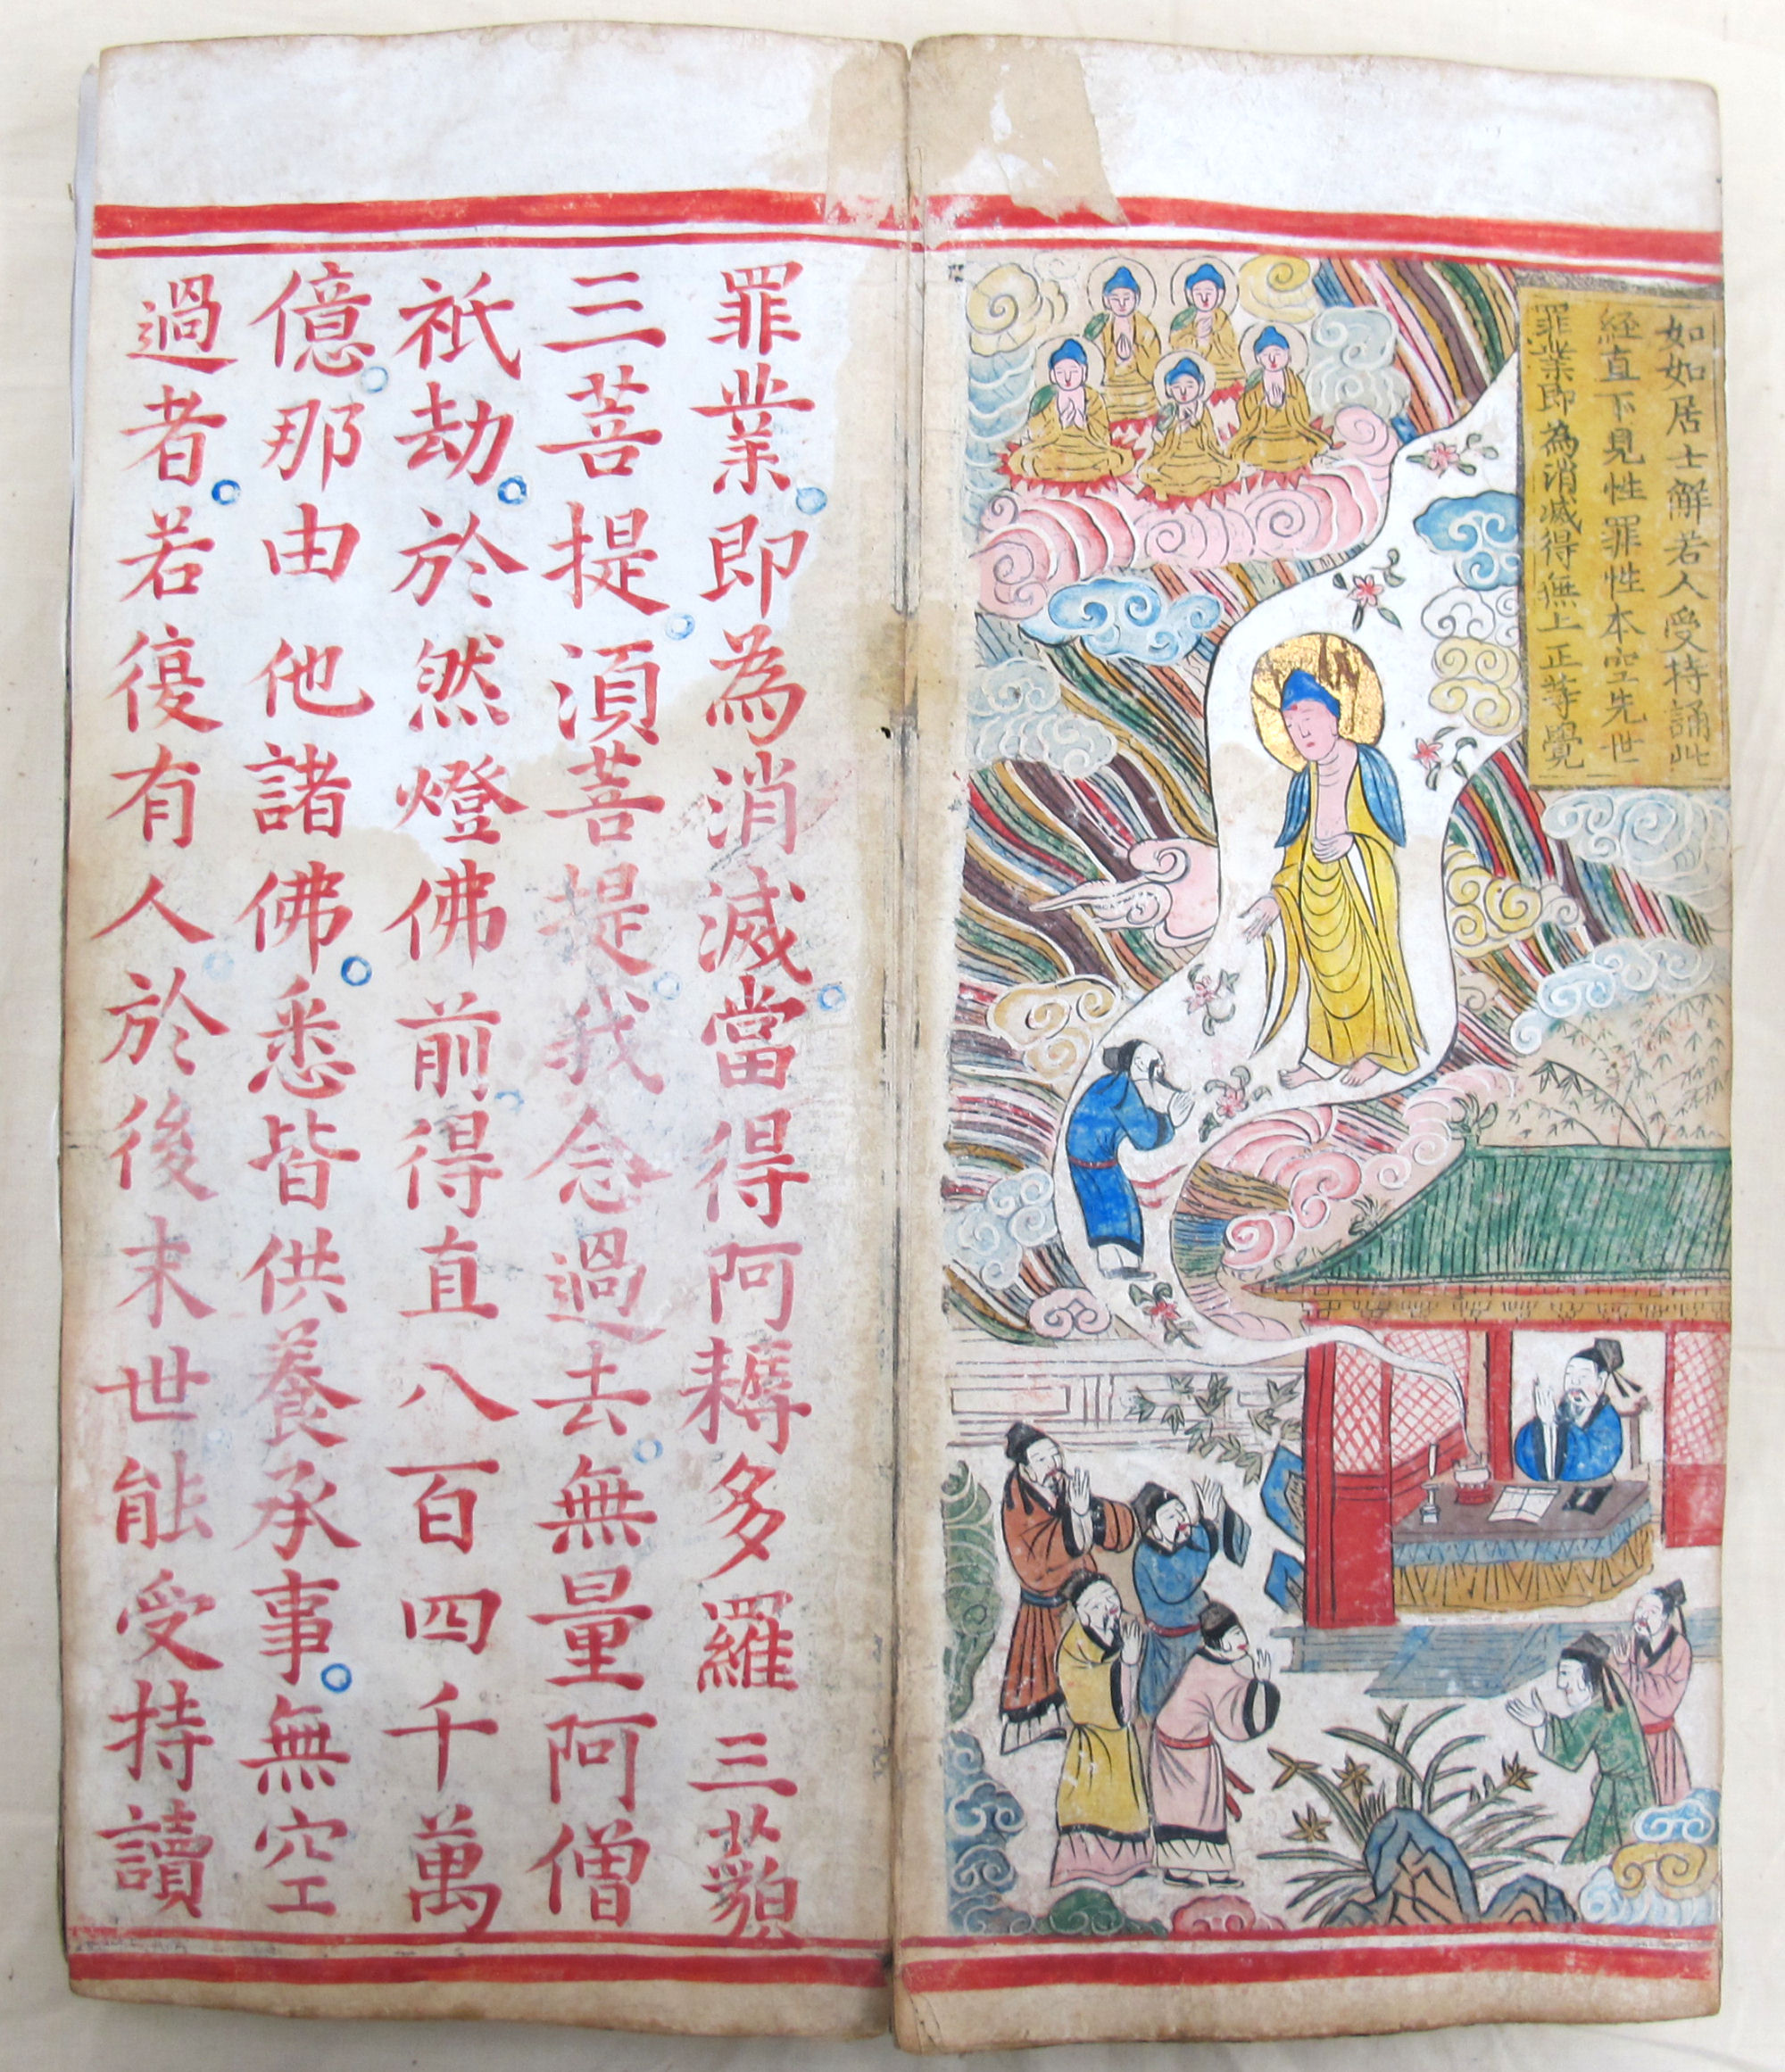 如如居士解若人受持誦此
経直下見性罪性本空先世
罪業即為消滅得無上正等覺
罪業即為消滅當得阿耨多羅三藐
三菩提須菩提我念過去無量阿僧
祇劫於然燈佛前得直八百四千萬
億那由他諸佛悉皆供養承事無空
過者若復有人於後末世能受持讀